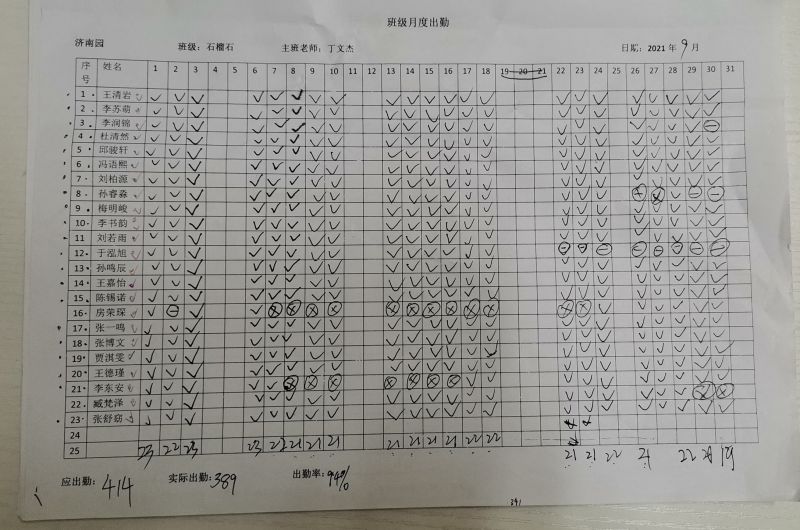 班级月度出勤
济南园 班级：石榴石 主班老师：丁文杰 日期：2021 年 9 月
序号 姓名 1 2 3 4 5 6 7 8 9 10 11 12 13 14 15 16 17 18 19 20 21 22 23 24 25 26 27 28 29 30 31
1 王清岩
2 李苏萌
3 李润锦
4 杜清然
5 邱骏轩
6 冯语熙
7 刘柏源
8 孙睿淼
9 梅明峻
10 李书韵
11 刘若雨
12 于泓旭
13 孙鸣辰
14 王嘉怡
15 陈锡诺
16 房荣琛
17 张一鸣
18 张博文
19 贾淇雯
20 王德瑾
21 李东安
22 臧梵泽
23 张舒窈
24
25 23 22 23 23 22 21 21 21 21 21 21 21 22 22 21 21 22 21 22 19
应出勤：414 实际出勤：389 出勤率：94%